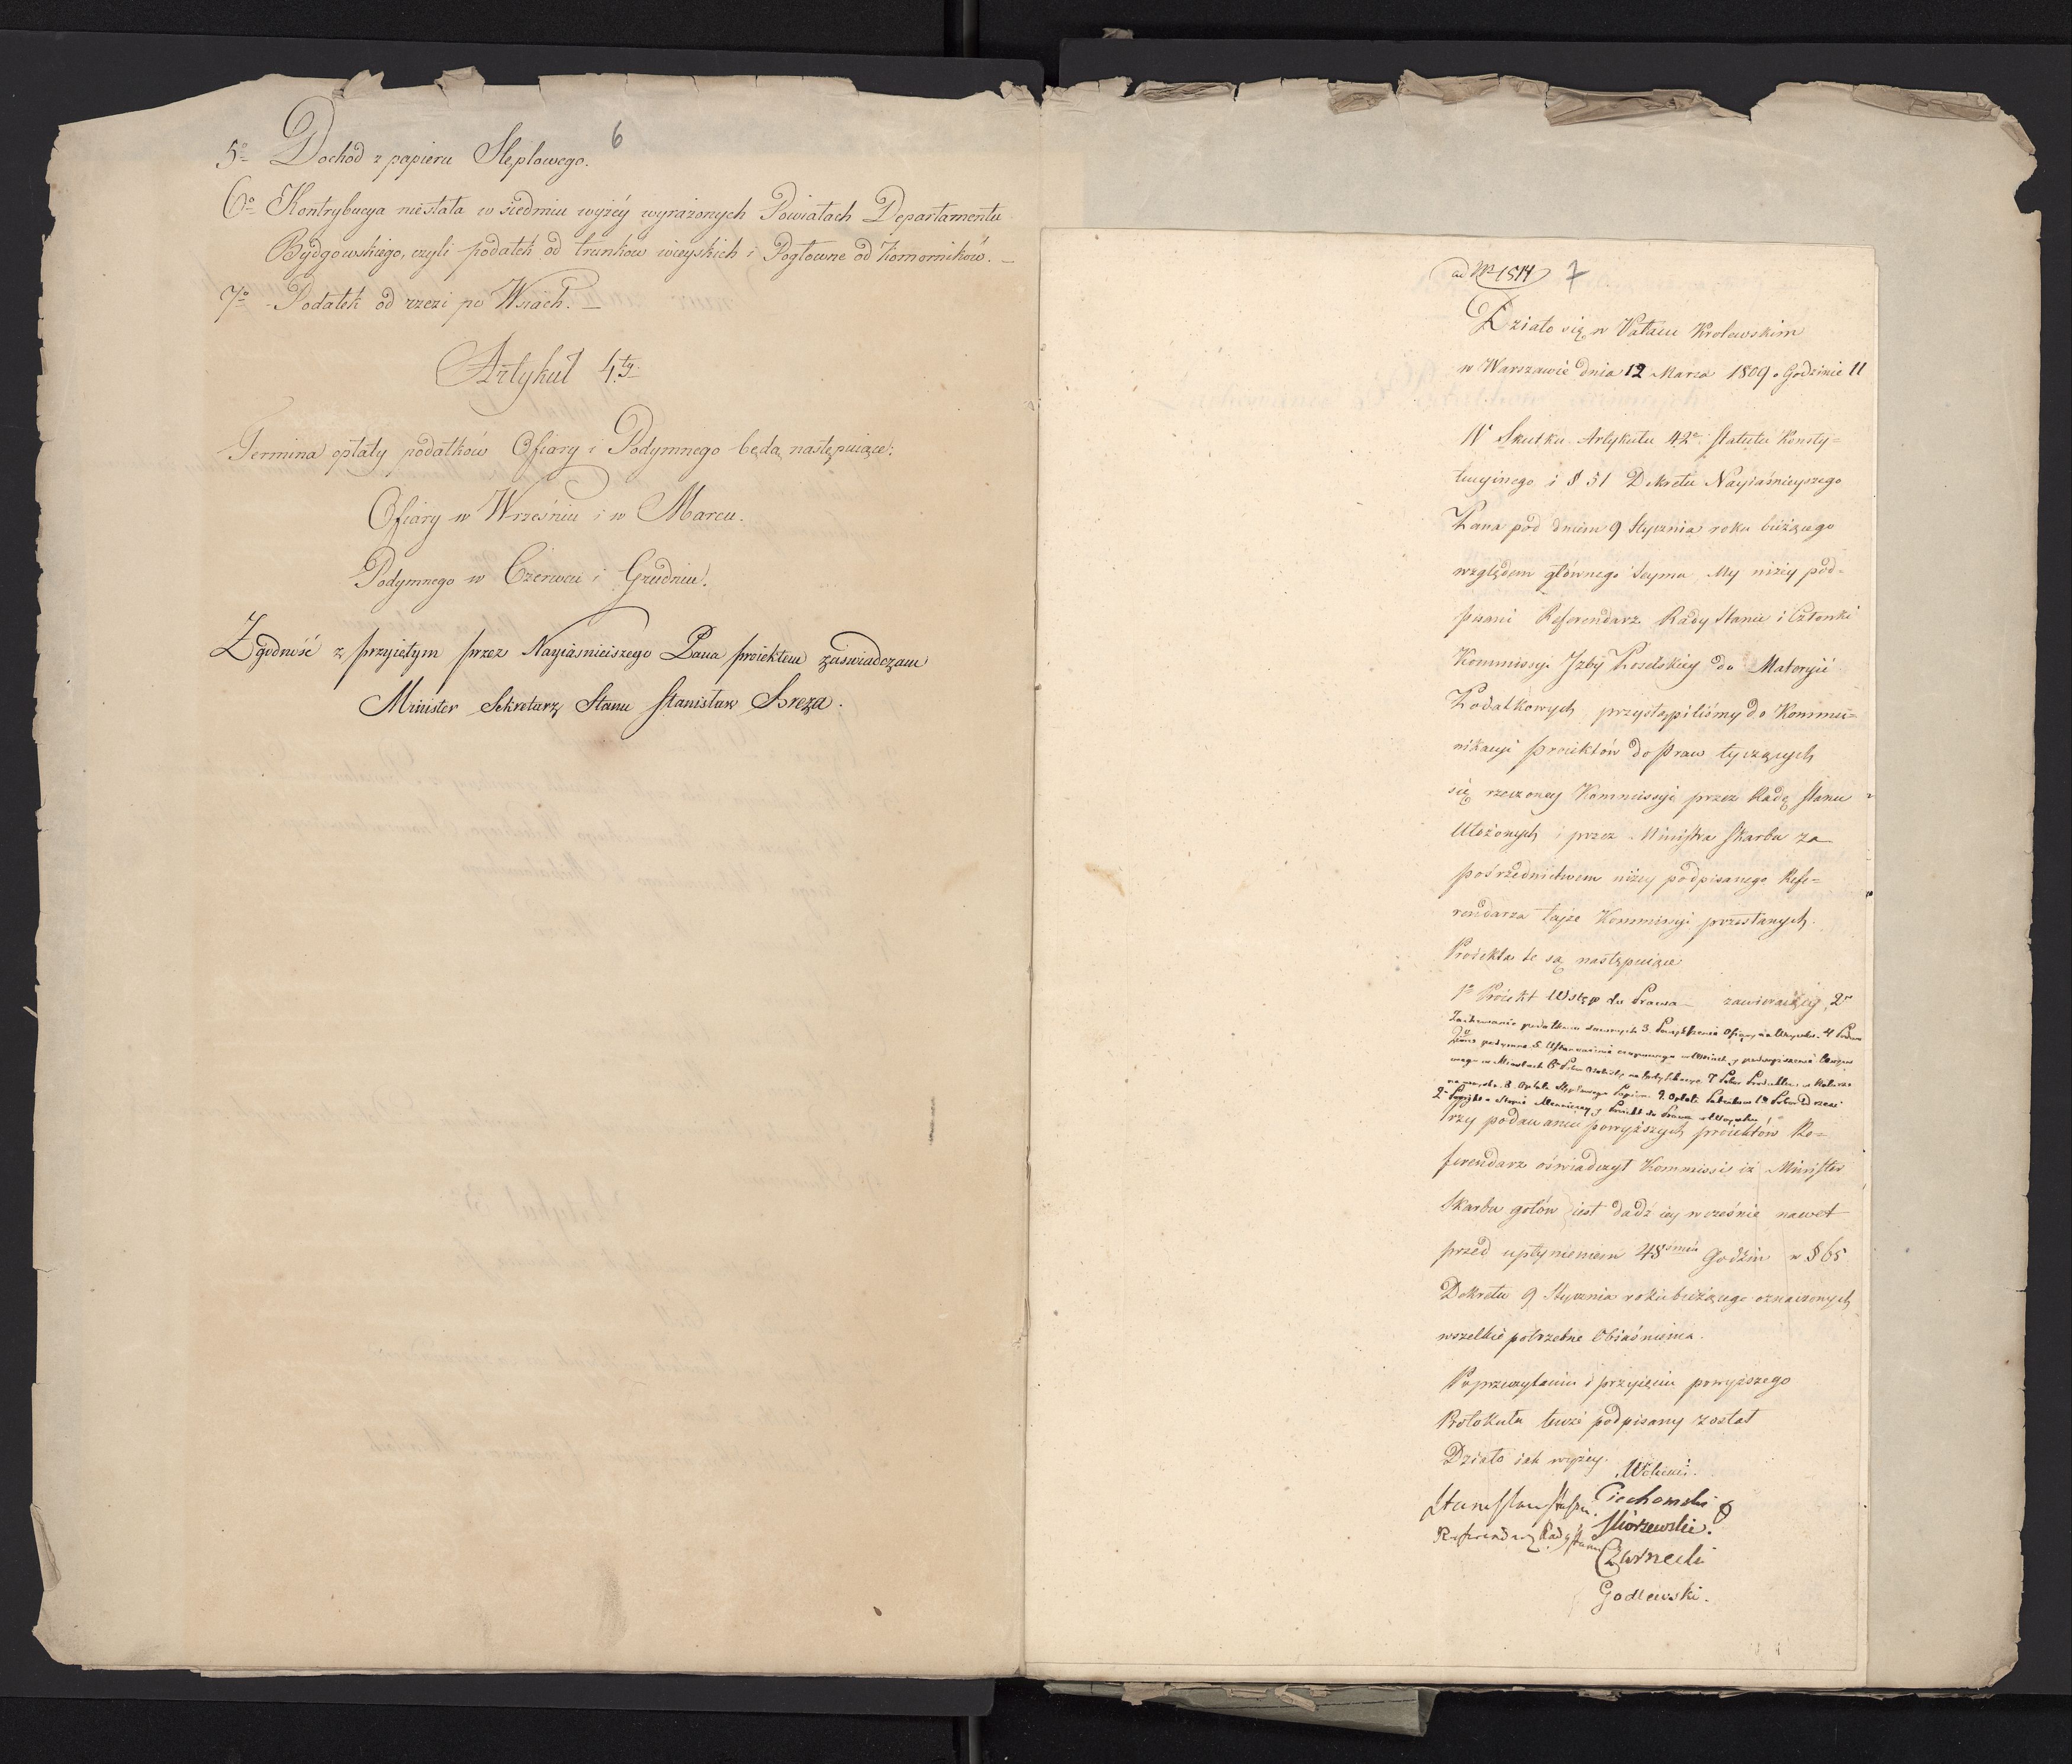 6
5º Dochod z papieru Stęplowego.
6º Kontrybucya niestała w siedmiu wyżéy wyrażonych Powiatach Departamentu
Bydgowskiego, czyli podatek od trunkow wieyskich i Pogłowne od Komorników.
7º Podatek od rzezi po Wsiach.
Artykuł 4ty
Termina opłaty podatków Ofiary i Podymnego będą następuiące:
Ofiary w Wrześniu i w Marcu.
Podymnego w Czerwcu i Grudniu.
Zgodność z przyiętym przez Nayiasnieiszego Pana proiektem zaswiadczam
Minister Sekretarz Stanu Stanisław Breza.
ad Nro 1514 7
Działo się w Pałacu Krolewskim
w Warszawie dnia 12 Marca 1809 o Godzinie 11
W Skutku Artykułu 42º Statutu Konsty=
tucyinego i § 51 Dekretu Nayiaśnieyszego
Pana pod dniem 9 Stycznia roku bieżącego
względem głównego Seymu My niżey pod=
pisani Referendarz Rady Stanu i Członki
Kommissyi Izby Poselskiey do Materyii
Podatkowych przystąpiliśmy do Kommu=
nikacyi proiektów do Praw tyczących
się rzeczoney Kommissyi przez Radę Stanu
Ułożonych i przez Ministra Skarbu za
pośrednictwem niżey podpisanego Refe=
rendarza tajże Kommissyi przesłanych.
Proiekta te są następuiące
1º Proiekt Wstęp do Prawa zawieraiący, 2º
Zachowanie podatkow 3. Ofiary 4
podymne 5. czopowego w Wsiach y podwyższenie
w Miastach 6
8. Opłata Stęplowego Papieru 9. Opłata
2º Proiekt o Stopie Menniczney y Proiekt do Prawa
Przy podawaniu powyższych proiektów Re=
ferendarz oświadczył Kommissii iż Minister
Skarbu gotów iest dadź iey wcześnie nawet
przed upłynieniem 48śmiu Godzin w § 65
Dekretu 9 Stycznia roku bieżącego oznaczonych
wszelkie potrzebne Obiaśnienia.
Po przeczytaniu i przyięciu powyższego
Protokułu tenże podpisany został
Działo iak wyżey.
Stanisław Staszic Ciechomski
Referendarz Rady Stanu Skórzewski.
Czarnecki
Godlewski.